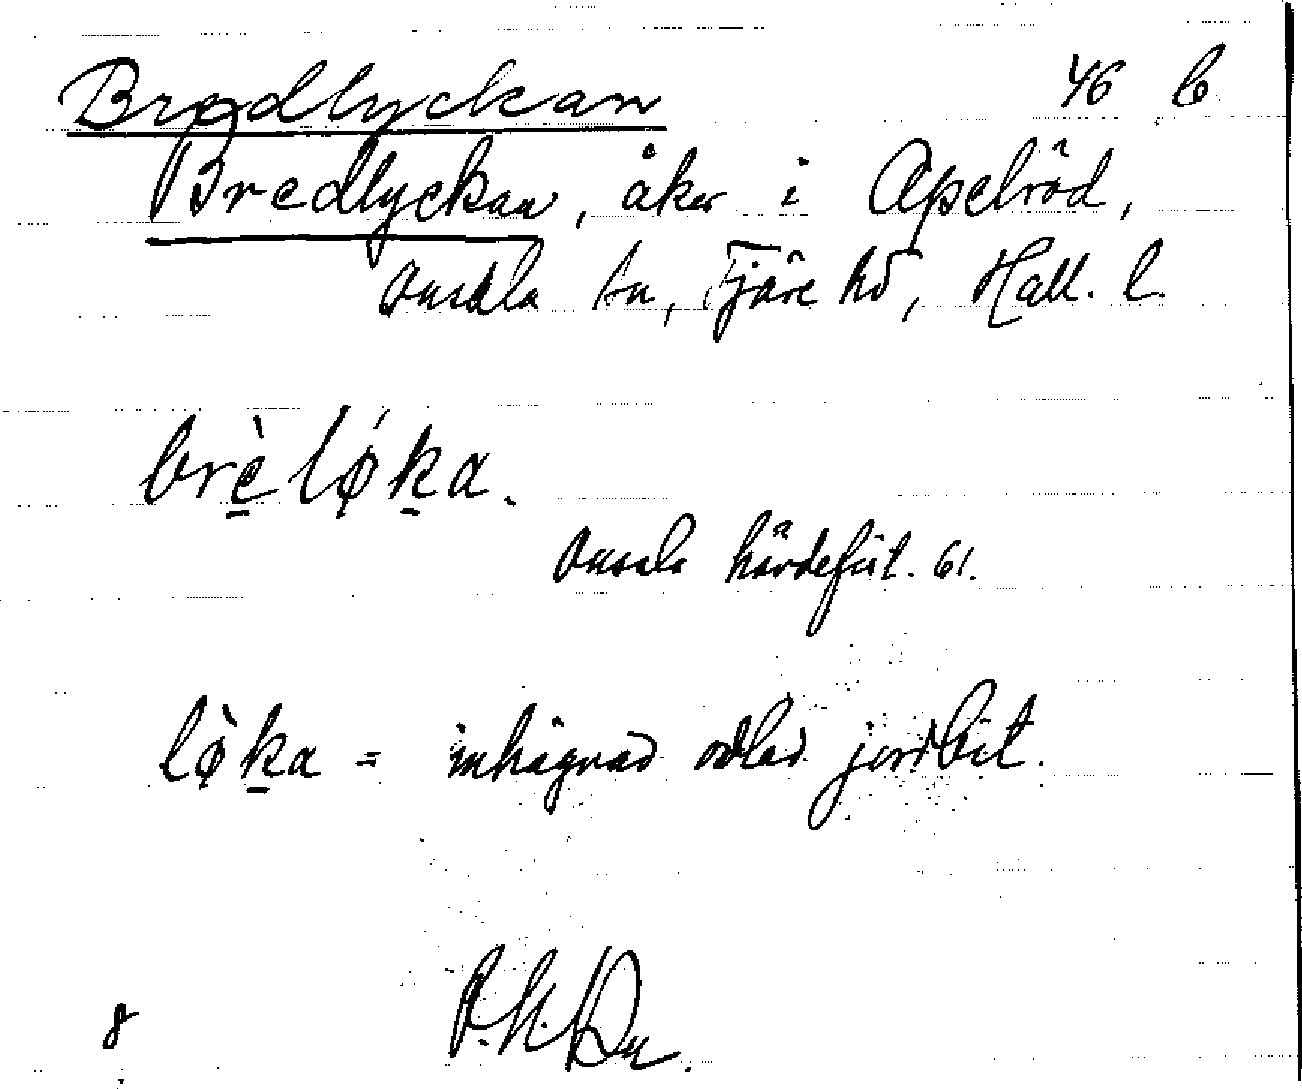 Bredlyckan 46 b
Bredlyckan, åker i Apelröd,
Onsala sn, Fjäre hd, Hall. l.
brèløka.
Onsala härdeföt. 61.
lø̀ka = inhägnad odlad jordbit.
8